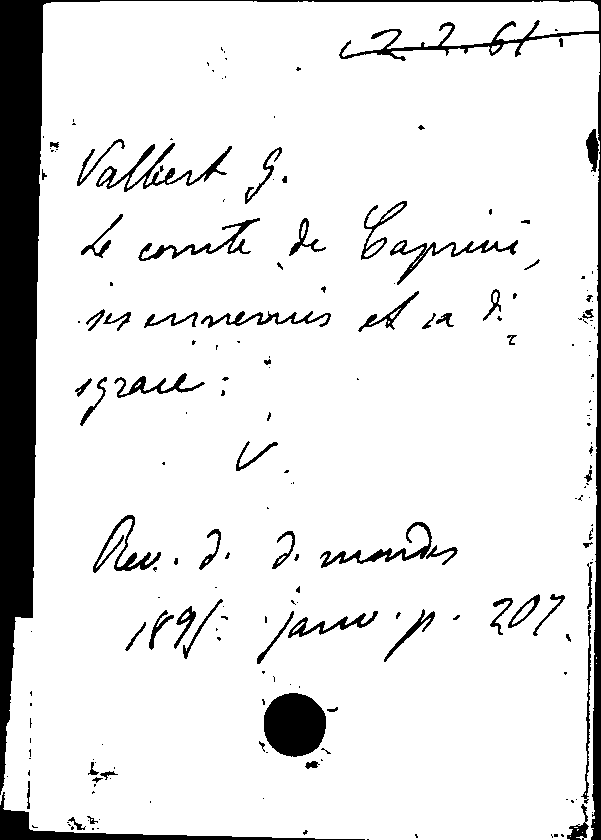 2.2.61.
Valbert G.
Le comte de Caprivi,
ses ennemis et sa di=
sgrace:
V.
Rev. d. d. mondes
1895. janv. p. 207.